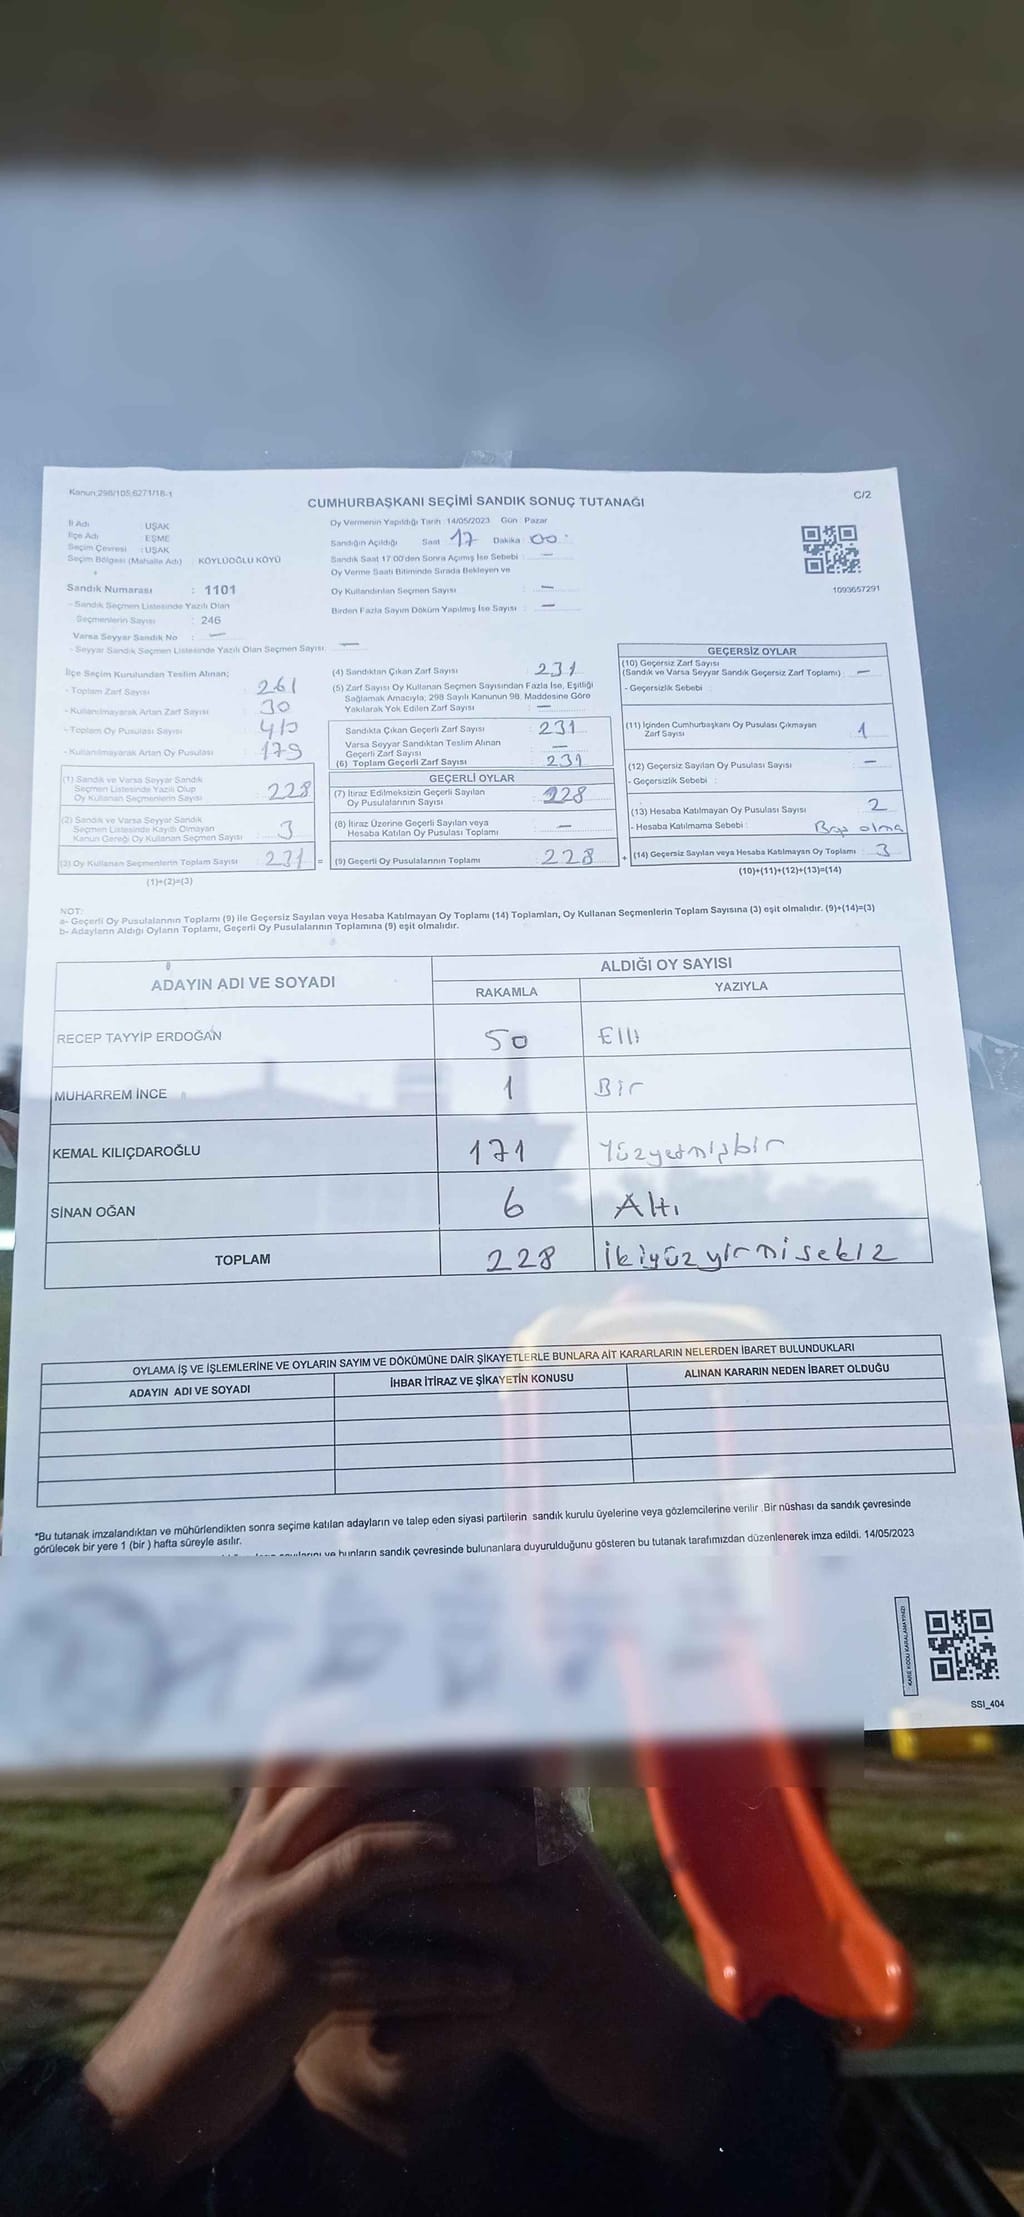 Kanun:298/105,6271/18-1
C/2
CUMHURBAŞKANI SEÇİMİ SANDIK SONUÇ TUTANAĞI
İl Adı : UŞAK
İlçe Adı : EŞME
Seçim Çevresi : UŞAK
Seçim Bölgesi (Mahalle Adı) : KÖYLÜOĞLU KÖYÜ
Sandık Numarası : 1101
- Sandık Seçmen Listesinde Yazılı Olan
Seçmenlerin Sayısı : 246
Varsa Seyyar Sandık No : —
- Seyyar Sandık Seçmen Listesinde Yazılı Olan Seçmen Sayısı: —
Oy Vermenin Yapıldığı Tarih :14/05/2023 Gün : Pazar
Sandığın Açıldığı Saat 17 Dakika : 00
Sandık Saat 17:00'den Sonra Açımış İse Sebebi : —
Oy Verme Saati Bitiminde Sırada Bekleyen ve
Oy Kullandırılan Seçmen Sayısı : —
Birden Fazla Sayım Döküm Yapılmış İse Sayısı : —
1093657291
İlçe Seçim Kurulundan Teslim Alınan;
- Toplam Zarf Sayısı : 261
- Kullanılmayarak Artan Zarf Sayısı : 30
- Toplam Oy Pusulası Sayısı
- Kullanılmayarak Artan Oy Pusulası : 179
(1) Sandık ve Varsa Seyyar Sandık
Seçmen Listesinde Yazılı Olup
Oy Kullanan Seçmenlerin Sayısı : 228
(2) Sandık ve Varsa Seyyar Sandık
Seçmen Listesinde Kayıtlı Olmayan
Kanun Gereği Oy Kullanan Seçmen Sayısı : 3
(3) Oy Kullanan Seçmenlerin Toplam Sayısı : 231 =
(1)+(2)=(3)
(4) Sandıktan Çıkan Zarf Sayısı : 231
(5) Zarf Sayısı Oy Kullanan Seçmen Sayısından Fazla İse, Eşitliği
Sağlamak Amacıyla; 298 Sayılı Kanunun 98. Maddesine Göre
Yakılarak Yok Edilen Zarf Sayısı : —
Sandıkta Çıkan Geçerli Zarf Sayısı : 231
Varsa Seyyar Sandıktan Teslim Alınan
Geçerli Zarf Sayısı : —
(6) Toplam Geçerli Zarf Sayısı : 231
GEÇERLİ OYLAR
(7) İtiraz Edilmeksizin Geçerli Sayılan
Oy Pusulalarının Sayısı : 228
(8) İtiraz Üzerine Geçerli Sayılan veya
Hesaba Katılan Oy Pusulası Toplamı : —
(9) Geçerli Oy Pusulalarının Toplamı : 228 +
GEÇERSİZ OYLAR
(10) Geçersiz Zarf Sayısı
(Sandık ve Varsa Seyyar Sandık Geçersiz Zarf Toplamı) : —
- Geçersizlik Sebebi :
(11) İçinden Cumhurbaşkanı Oy Pusulası Çıkmayan
Zarf Sayısı : 1
(12) Geçersiz Sayılan Oy Pusulası Sayısı : —
- Geçersizlik Sebebi :
(13) Hesaba Katılmayan Oy Pusulası Sayısı : 2
- Hesaba Katılmama Sebebi : Boş olma
(14) Geçersiz Sayılan veya Hesaba Katılmayan Oy Toplamı : 3
(10)+(11)+(12)+(13)=(14)
NOT:
a- Geçerli Oy Pusulalarının Toplamı (9) ile Geçersiz Sayılan veya Hesaba Katılmayan Oy Toplamı (14) Toplamları, Oy Kullanan Seçmenlerin Toplam Sayısına (3) eşit olmalıdır. (9)+(14)=(3)
b- Adayların Aldığı Oyların Toplamı, Geçerli Oy Pusulalarının Toplamına (9) eşit olmalıdır.
ADAYIN ADI VE SOYADI ALDIĞI OY SAYISI
RAKAMLA YAZIYLA
RECEP TAYYİP ERDOĞAN 50 Elli
MUHARREM İNCE 1 Bir
KEMAL KILIÇDAROĞLU 171 Yüzyetmişbir
SİNAN OĞAN 6 Altı
TOPLAM 228 İkiyüzyirmisekiz
OYLAMA İŞ VE İŞLEMLERİNE VE OYLARIN SAYIM VE DÖKÜMÜNE DAİR ŞİKAYETLERLE BUNLARA AİT KARARLARIN NELERDEN İBARET BULUNDUKLARI
ADAYIN ADI VE SOYADI İHBAR İTİRAZ VE ŞİKAYETİN KONUSU ALINAN KARARIN NEDEN İBARET OLDUĞU
*Bu tutanak imzalandıktan ve mühürlendikten sonra seçime katılan adayların ve talep eden siyasi partilerin sandık kurulu üyelerine veya gözlemcilerine verilir .Bir nüshası da sandık çevresinde
görülecek bir yere 1 (bir ) hafta süreyle asılır.
ve bunların sandık çevresinde bulunanlara duyurulduğunu gösteren bu tutanak tarafımızdan düzenlenerek imza edildi. 14/05/2023
KARE KODU KARALAMAYINIZ!
SSI_404